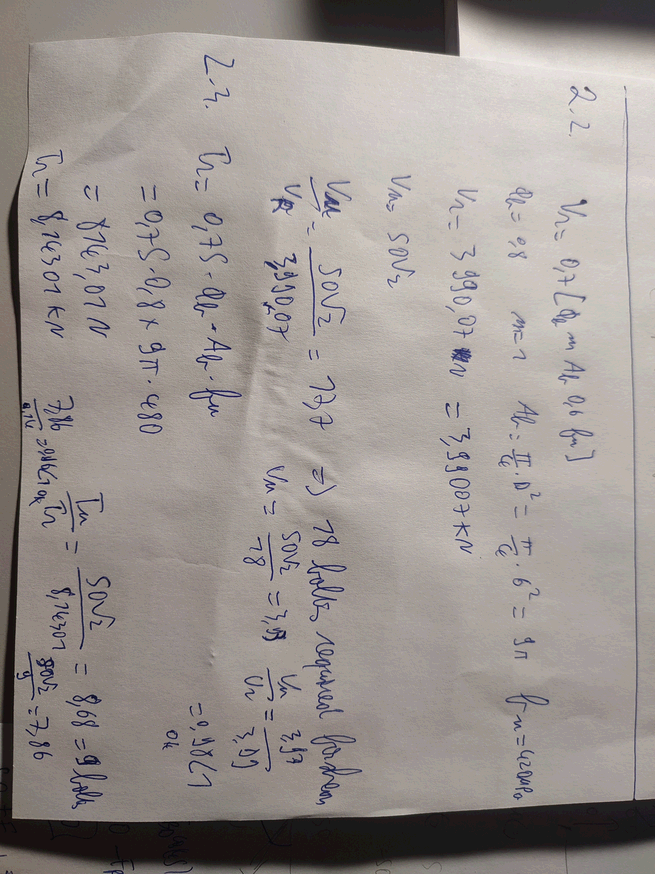 2.2. Vr = 0,7 [ϕb m Ab 0,6 fu]
ϕb = 0,8 m = 1 Ab = π/4 · D² = π/4 · 6² = 9π fu = 420MPa
Vr = 3990,07 N = 3,99007 KN
Vu = 50√2
Vu/Vr = 50√2/3,99007 = 17,7 => 18 bolts required for shear
Vu = 50√2/18 = 3,93 Vu/Vr = 3,93/3,99 = 0,98 < 1 ok
2.3. Tr = 0,75 · ϕb · Ab · fu
= 0,75 · 0,8 × 9π · 480
= 8143,01 N
Tr = 8,14301 KN Tu/Tr = 50√2/8,14301 = 8,68 = 9 bolts
50√2/9 = 7,86